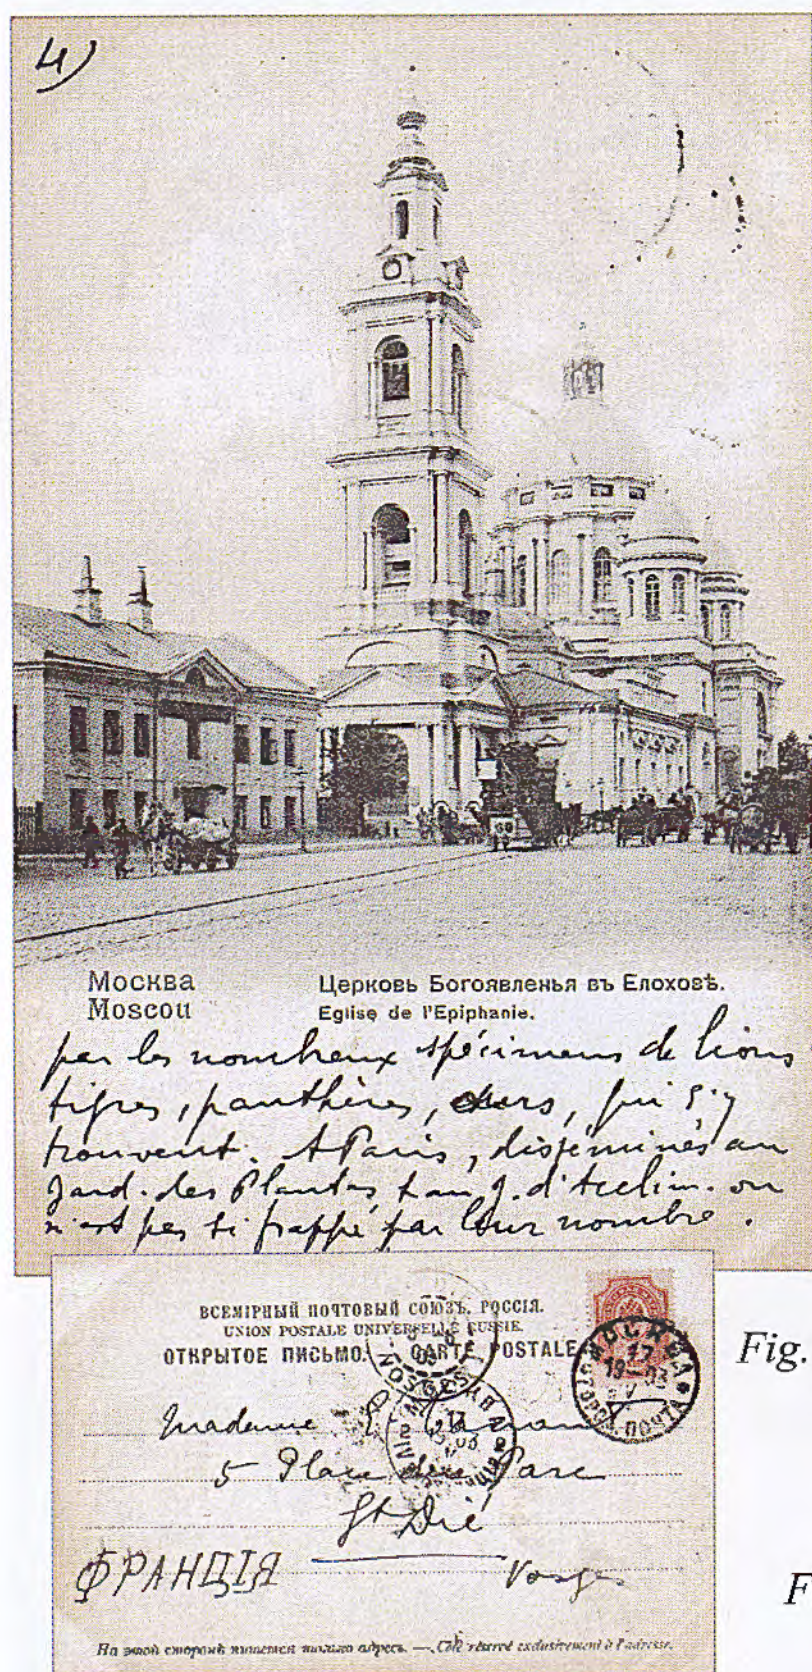 4)
Москва
Moscou
Церковь Богоявленья въ Елоховѣ.
Eglise de l'Epiphanie.
par les nombreux spécimens de lions
tigres, panthères, ours, qui s'y
trouvent. A Paris, disséminés au
Jard. des Plantes & au J. d'Acclim. on
n'est pas si frappé par leur nombre.
ВСЕМІРНЫЙ ПОЧТОВЫЙ СОЮЗЪ. РОССІЯ.
UNION POSTALE UNIVERSELLE RUSSIE.
ОТКРЫТОЕ ПИСЬМО. CARTE POSTALE
МОСКВА
17
19-03
V
ПОЧТА
Madame E.
5 Place du Parc
St Dié
ФРАНЦІЯ
Vosges
На этой сторонѣ пишется только адресъ. — Coté réservé exclusivement à l'adresse.
Fig.
F